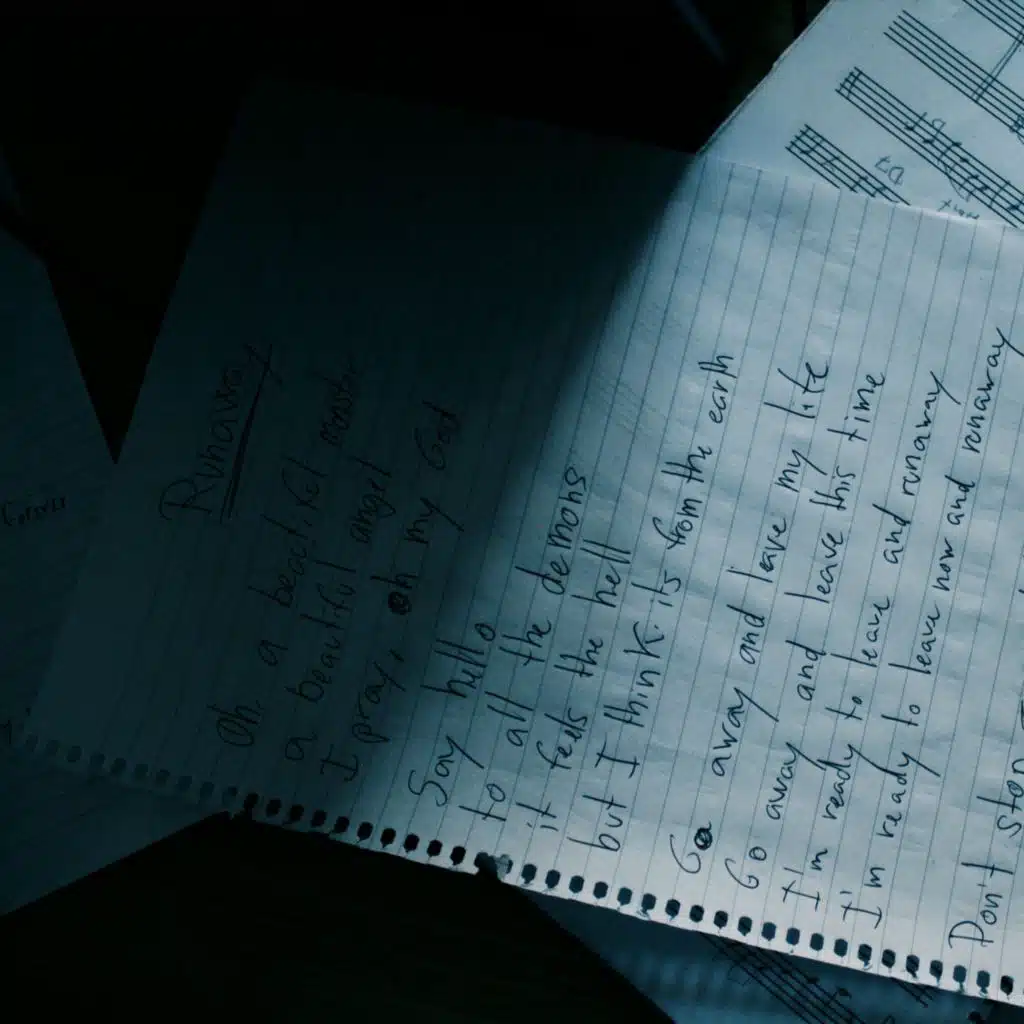 Runaway
Oh, a beautiful monster
a beautiful angel
I pray, oh my God
Say hello
to all the demons
it feels the hell
but I think its from the earth
Go away and leave my life
Go away and leave this time
I'm ready to leave and runaway
I'm ready to leave now and runaway
Don't stop
D7